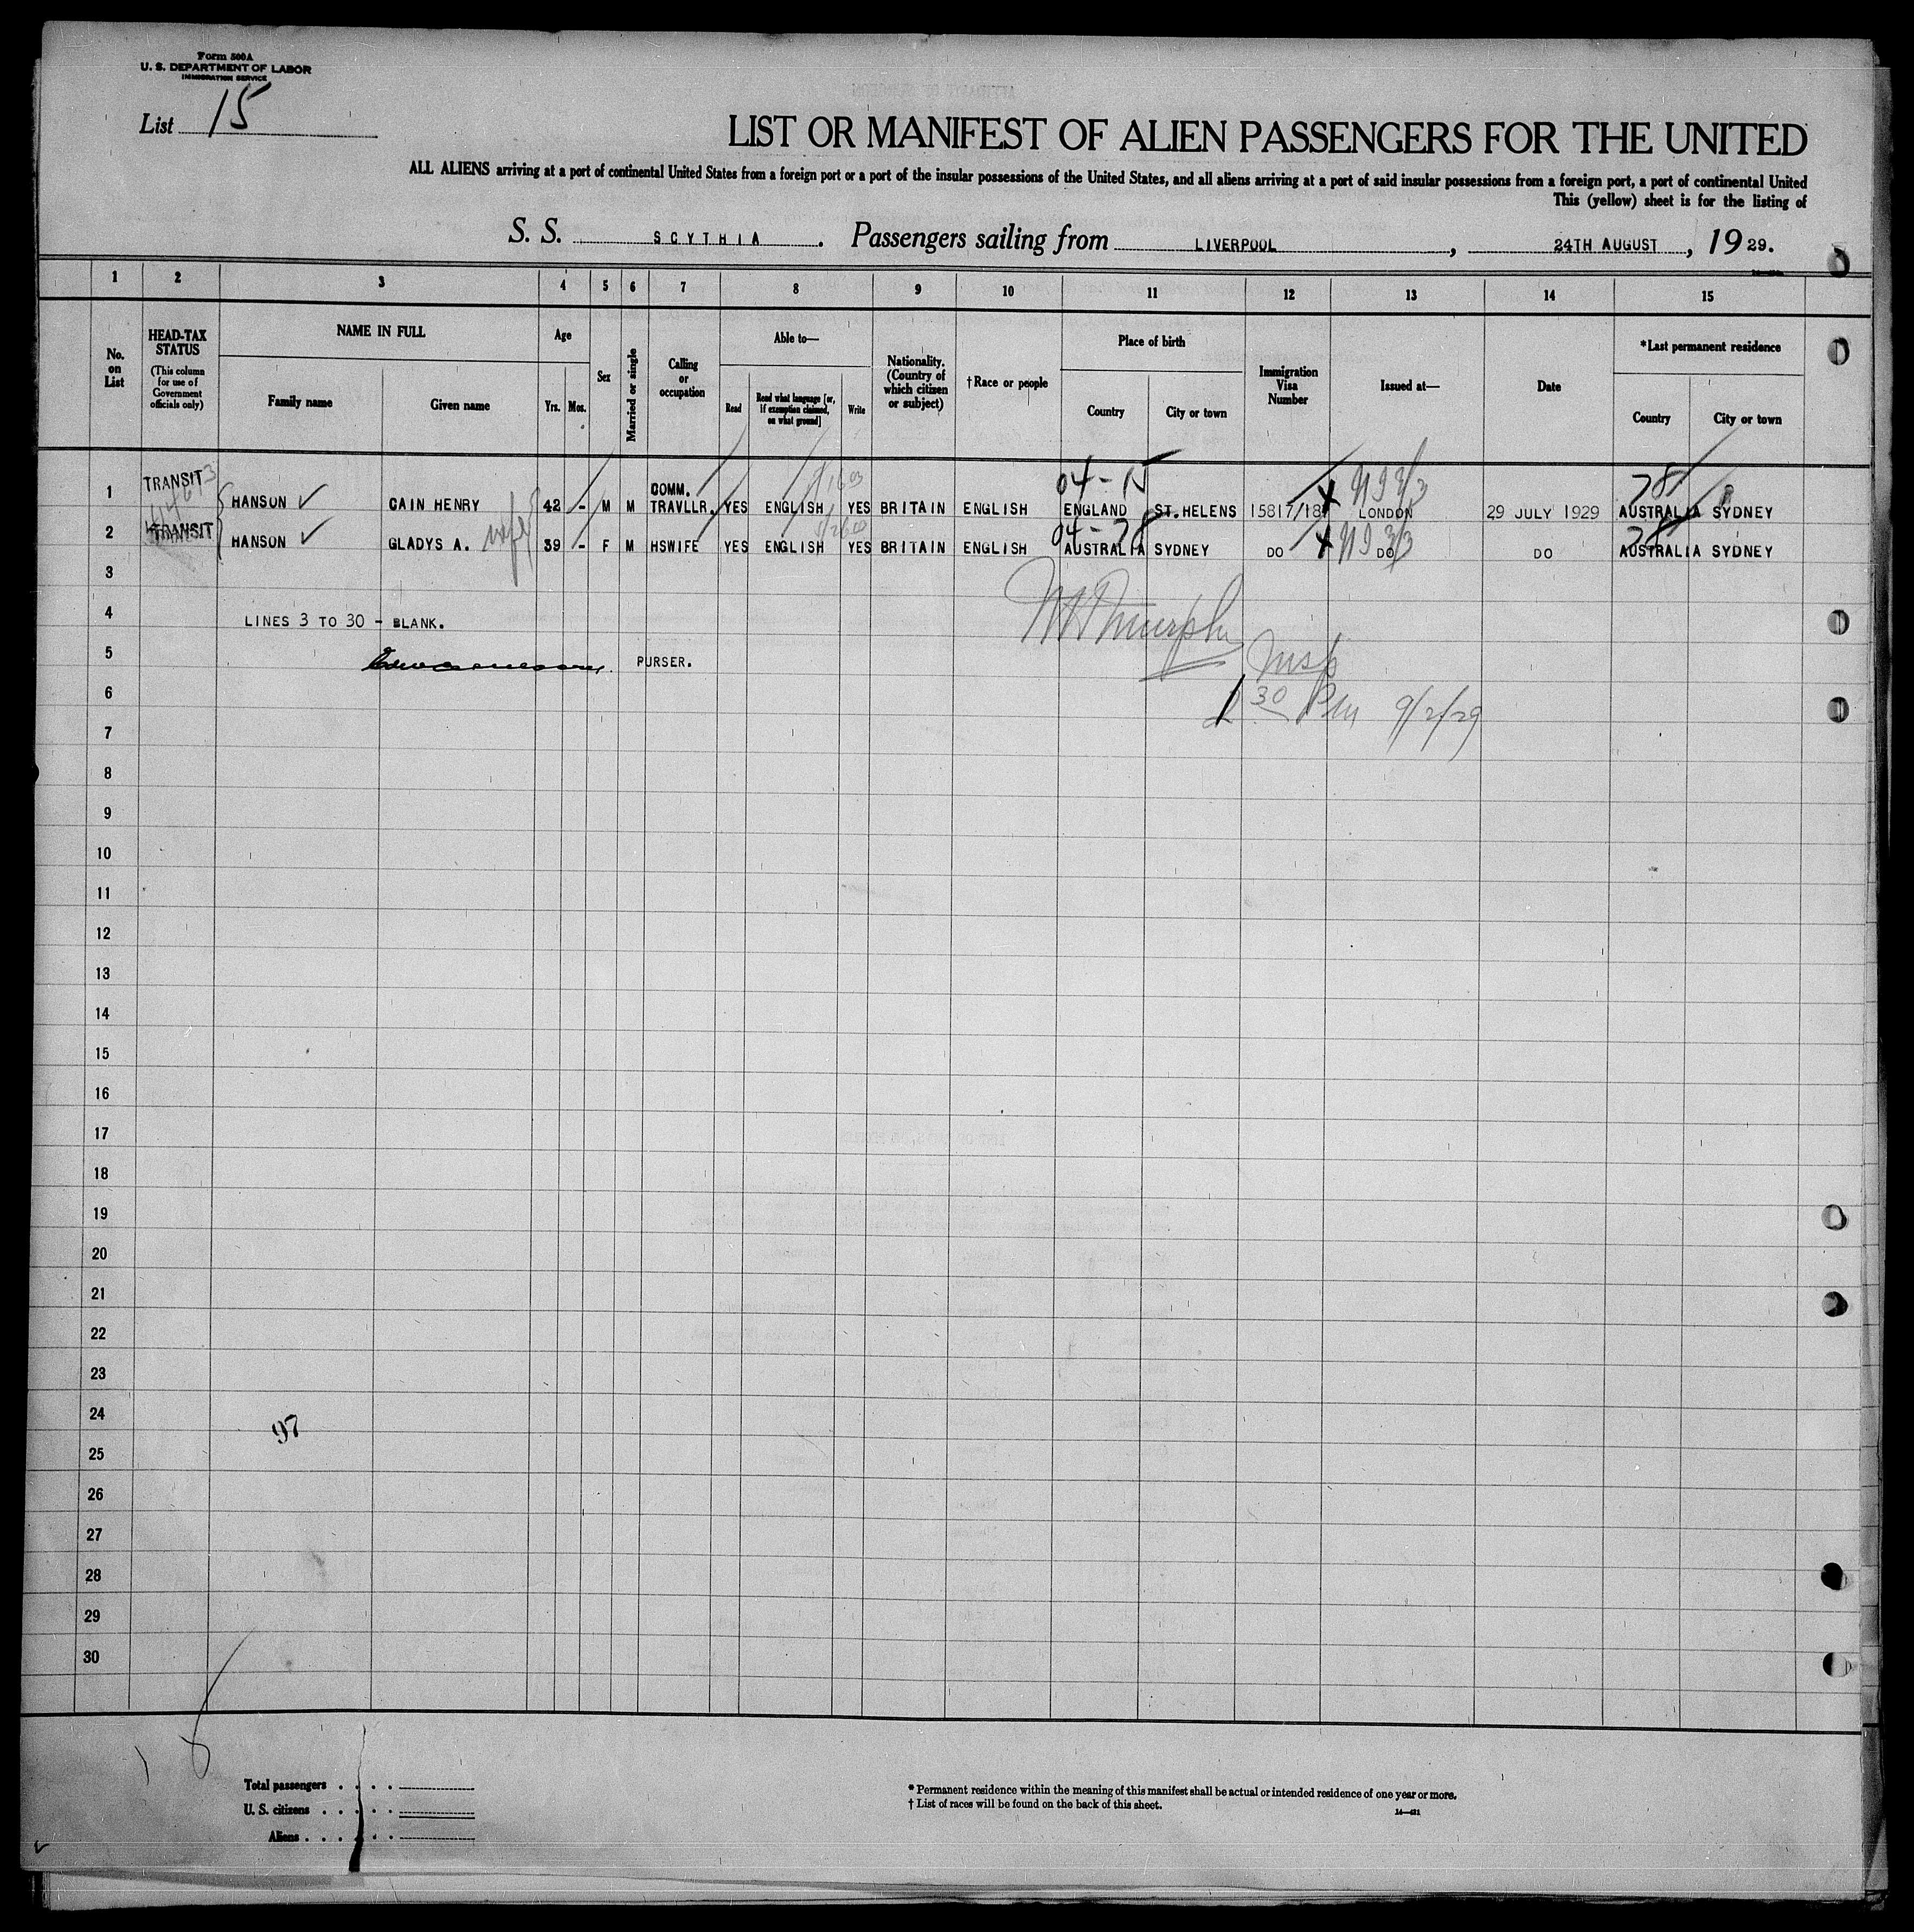 Form 500A
U. S. DEPARTMENT OF LABOR
IMMIGRATION SERVICE
List 15
LIST OR MANIFEST OF ALIEN PASSENGERS FOR THE UNITED
ALL ALIENS arriving at a port of continental United States from a foreign port or a port of the insular possessions of the United States, and all aliens arriving at a port of said insular possessions from a foreign port, a port of continental United
This (yellow) sheet is for the listing of
S. S. SCYTHIA. Passengers sailing from LIVERPOOL, 24TH AUGUST, 1929.
1 2 3 4 5 6 7 8 9 10 11 12 13 14 15
No. on List
HEAD-TAX STATUS
(This column for use of Government officials only)
NAME IN FULL
Family name Given name
Age
Yrs. Mos.
Sex
Married or single
Calling or occupation
Able to—
Read
Read what language [or, if exemption claimed, on what ground]
Write
Nationality. (Country of which citizen or subject)
†Race or people
Place of birth
Country City or town
Immigration Visa Number
Issued at—
Date
*Last permanent residence
Country City or town
04 - 78
1 TRANSIT HANSON ✓ CAIN HENRY 42 - M M COMM. TRAVLLR. YES ENGLISH YES BRITAIN ENGLISH ENGLAND ST. HELENS 15817/18 LONDON 29 JULY 1929 AUSTRALIA SYDNEY
2 TRANSIT HANSON ✓ GLADYS A. wife 39 - F M HSWIFE YES ENGLISH YES BRITAIN ENGLISH AUSTRALIA SYDNEY DO DO DO AUSTRALIA SYDNEY
3
4 LINES 3 TO 30 - BLANK.
5 PURSER.
6 30 Pm 9/2/29
7
8
9
10
11
12
13
14
15
16
17
18
19
20
21
22
23
24 97
25
26
27
28
29
30
Total passengers
U. S. citizens
Aliens
* Permanent residence within the meaning of this manifest shall be actual or intended residence of one year or more.
† List of races will be found on the back of this sheet.
14—421